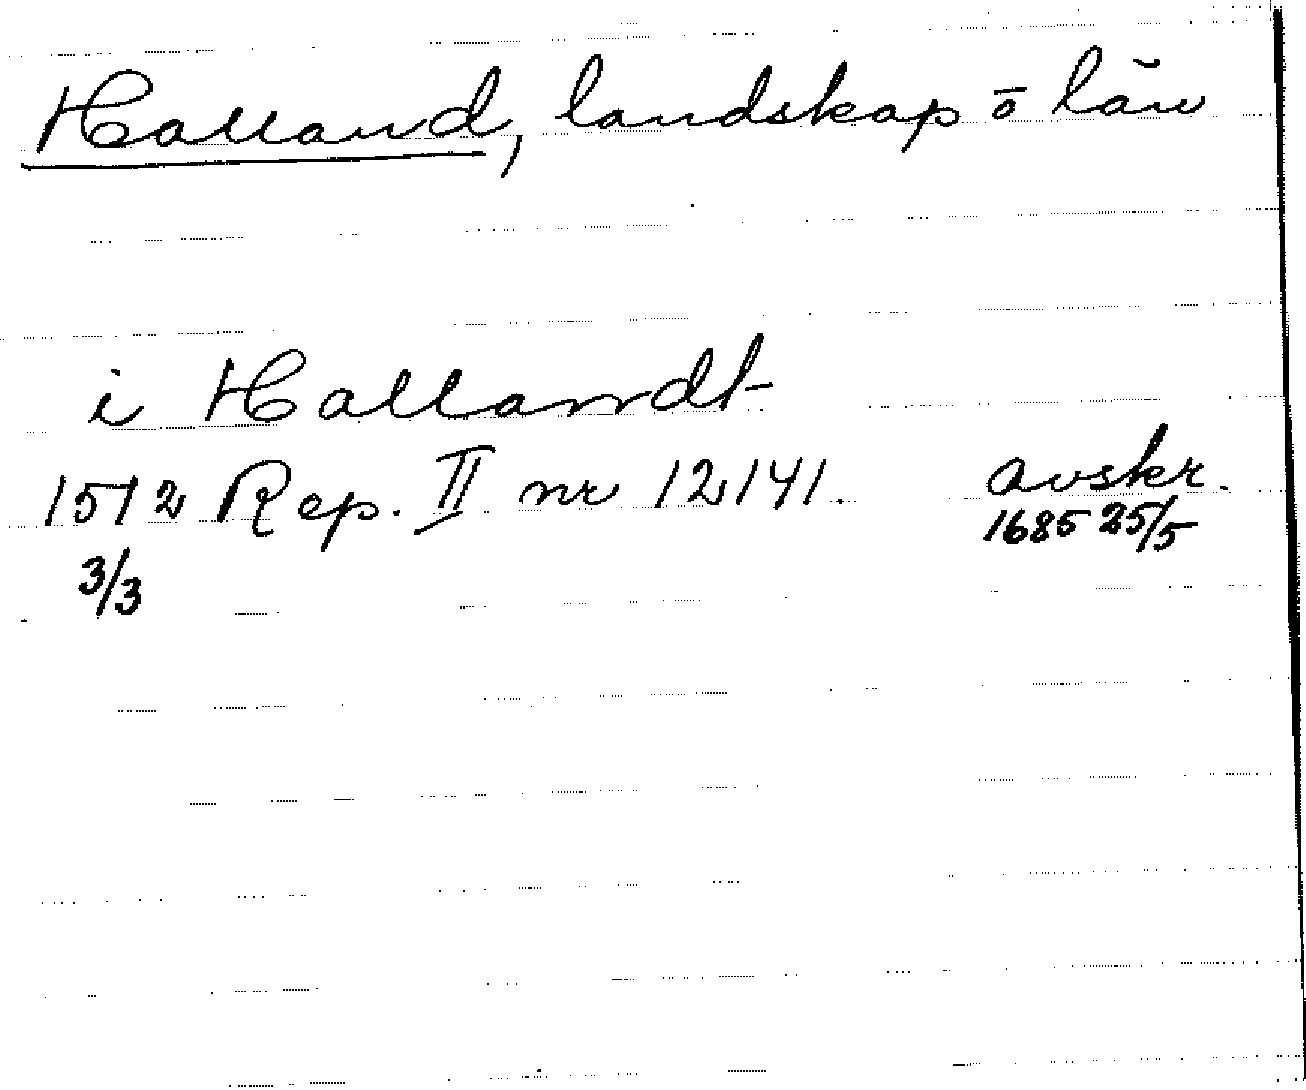 Halland, landskap ō län
i Hallanndt
1512 Rep. II nr 12141. avskr.
3/3 1685 25/5